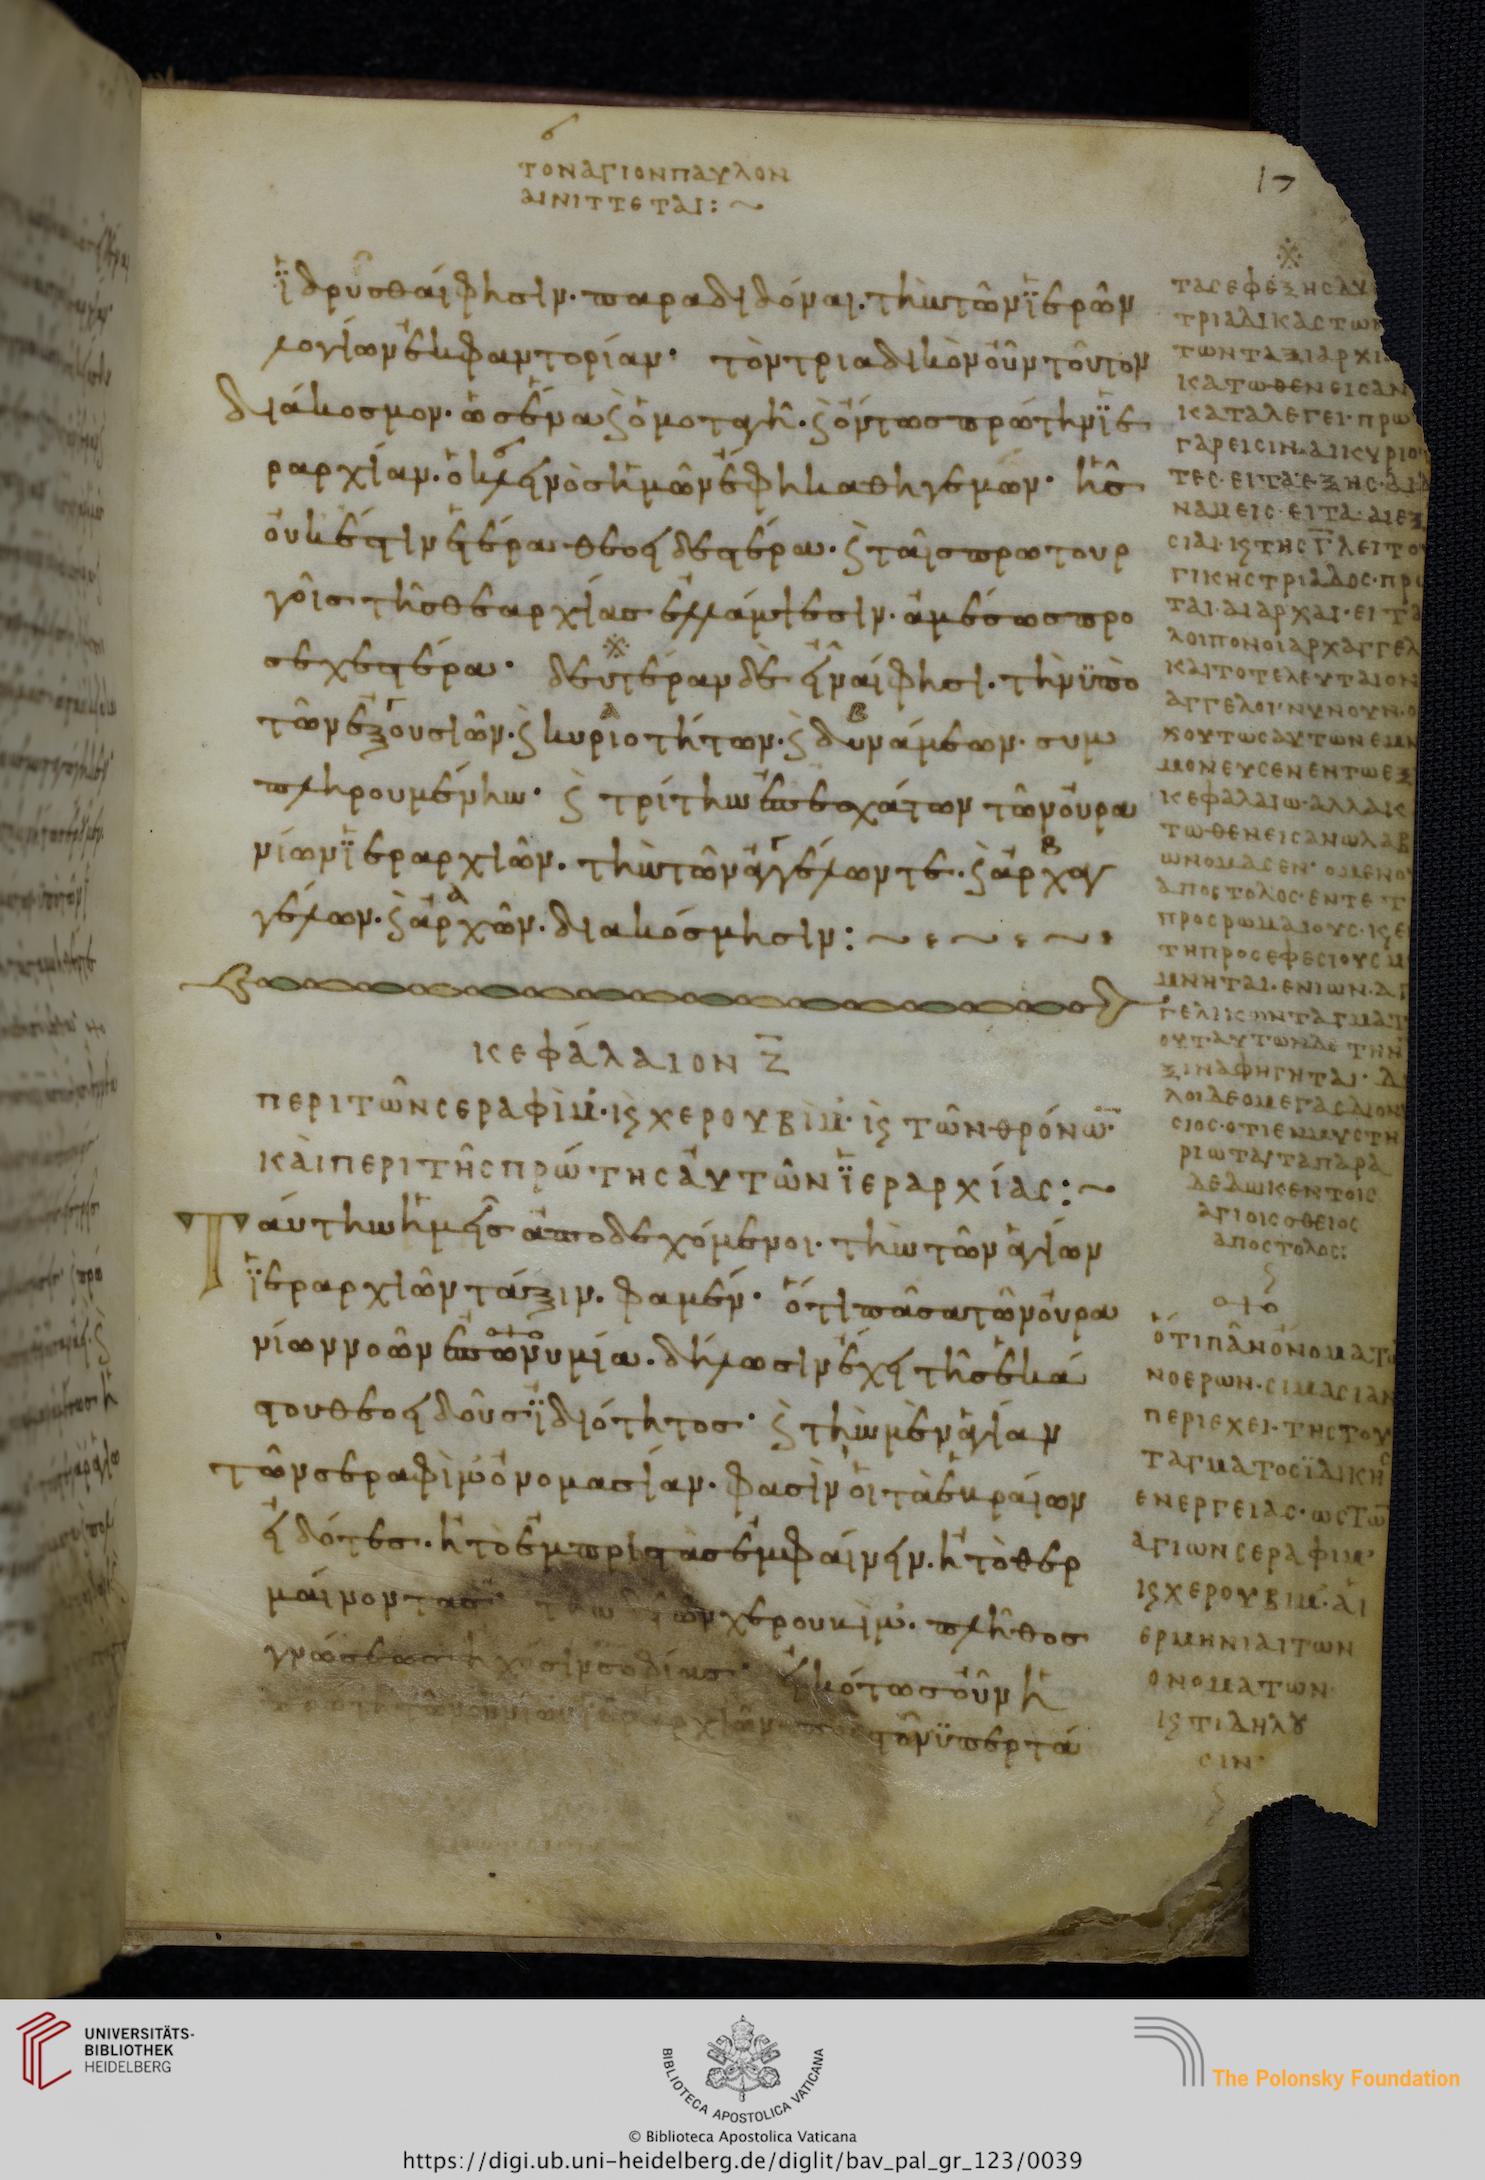 τοναγιονπαυλον
αινιττεται:~
17
ἱ̈δρῦσθαί φησιν· παραδιδόναι· τὴν τῶν ἱ̈ερῶν
λογίων ἐκφαντορίαν· τὸν τριαδικὸν οὖν τοῦτον
διάκοσμον· ὡς ἕνα ϗ ὁμοταγῆ· ϗ ὄντως πρώτην ἱ̈ε
ραρχίαν· ὁ κλεινὸς ἡμῶν ἔφη καθηγεμών· ἧς
οὐκ ἔστιν ἑτέρα θεοειδεστέρα· ϗ ταῖς πρωτουρ
γοῖς τῆς θεαρχίας ἐλλάμψεσιν· ἀμέσως προ
σεχεστέρα· δευτέραν δὲ εἶναί φησι· τὴν ὑ̈πὸ
τῶν ἐξουσιῶν· ϗ κυριοτήτων· ϗ δυνάμεων· συμ
πληρουμένην· ϗ τρίτην ἐπ ἐσχάτων τῶν οὐρα
νίων ἱ̈εραρχιῶν· τὴν τῶν ἀγγέλων τε· ϗ ἀρχαγ
γέλων· ϗ ἀρχῶν· διακόσμησιν:~
κεφάλαιον Ζ̄
περὶ τῶν σεραφὶμ· ϗ χερουβὶμ· ϗ τῶν θρόνω̄·
καὶ περὶ τῆς πρώτης αὐτῶν ἱ̈εραρχίας:~
Ταύτην ἡμεῖς ἀποδεχόμενοι· τὴν τῶν ἁγίων
ἱ̈εραρχιῶν τάξιν· φαμέν· ὅτι πᾶσα τῶν οὐρα
νίων νοῶν ἐπωνυμία· δήλωσιν ἔχει τῆς ἑκά
στου θεοειδοῦς ἰ̈διότητος· ϗ τὴν μὲν ἁγίαν
τῶν σεραφὶμ ὀνομασίαν· φασὶν οἱ τὰ ἑβραίων
εἰδότες· ἢ τὸ ἐμπρηστὰς ἐμφαίνειν· ἢ τὸ θερ
μαίνοντας· τὴν χερουβὶμ· πλῆθος
γνώσεως ἢ χύσιν σοφίας· εἰκότως οὖν ἡ
τὸν ὑ̈περτά
τασεφεξησαυ
τριαδικαστων
τωνταξιαρχι
κατωθενεισαν
καταλεγει·πρω
γαρεισιν·αικυριο
τες·ειταεξησ·αιδ
ναμεις·ειτα·αιεξ
σιαι·ϗτησ Γ̄ λειτο
γικηστριαδος·πρ
ται·αιαρχαι·ειτα
λοιπονοιαρχαγγελ
καιτοτελευταιον
αγγελοι·νυνουν·ο
χουτωσαυτωνεμν
μονευσενεντωεξ
κεφαλαιω·αλλακ
τωθενεισανωλαβ
ωνομασεν·ομενο
αποστολος·εντετ
προσρωμαιους·ϗε
τηπροσεφεσιουσμ
μνηται·ενιων·αγ
γελικωνταγματ
ουταυτωνδετην
ξιναφηγηται·δ
λοιδεομεγασδιον
σιος·οτιενμυστη
ριωταυταπαρα
δεδωκεντοις
αγιοισοθειος
αποστολος:
ὅτιπᾶνὄνοματω
νοερων·σιμασιαν
περιεχει·τηστου
ταγματοσϊδικησ
ενεργειας·ωστω̄
αγιωνσεραφιμ·
ϗχερουβιμ·αἱ
ερμηνιαιτων
ονοματων·
ϗτιδηλȣ
σιν·
UNIVERSITÄTS-
BIBLIOTHEK
HEIDELBERG
BIBLIOTECA APOSTOLICA VATICANA
The Polonsky Foundation
© Biblioteca Apostolica Vaticana
https://digi.ub.uni-heidelberg.de/diglit/bav_pal_gr_123/0039